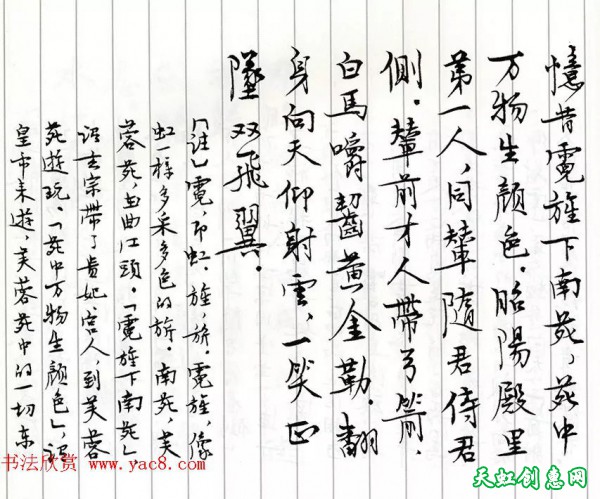 憶昔霓旌下南苑，苑中
万物生顏色。昭陽殿里
第一人，同輦隨君侍君
側。輦前才人帶弓箭，
白馬嚼齧黃金勒。翻
身向天仰射雲，一笑正
墜双飛翼。
〔註〕霓，即虹。旌，旂。霓旌，像
虹一樣多采多色的旂。南苑，芙
蓉苑，在曲江頭。「霓旌下南苑」
詔玄宗帶了貴妃宮人，到芙蓉
苑遊玩。「苑中万物生顏色」，詔
皇帝来遊，芙蓉苑中的一切东
书法欣赏 www.yac8.com
天虹创意网